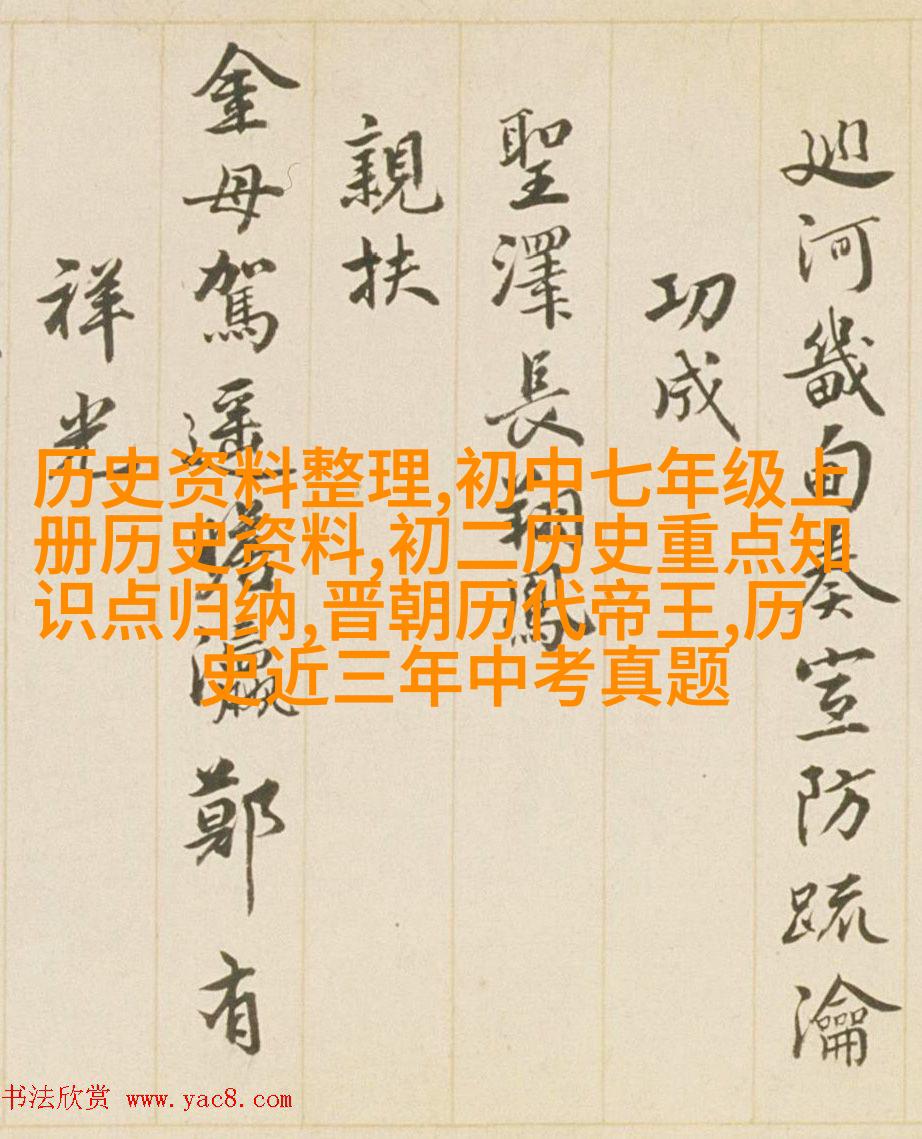 廵河畿面奏宣防疏瀹
功成
聖澤長翔鳳
親扶
金母駕遥瀛鄭有
祥光
历史资料整理,初中七年级上
册历史资料,初二历史重点知
识点归纳,晋朝历代帝王,历
史近三年中考真题
书法欣赏 www.yac8.com